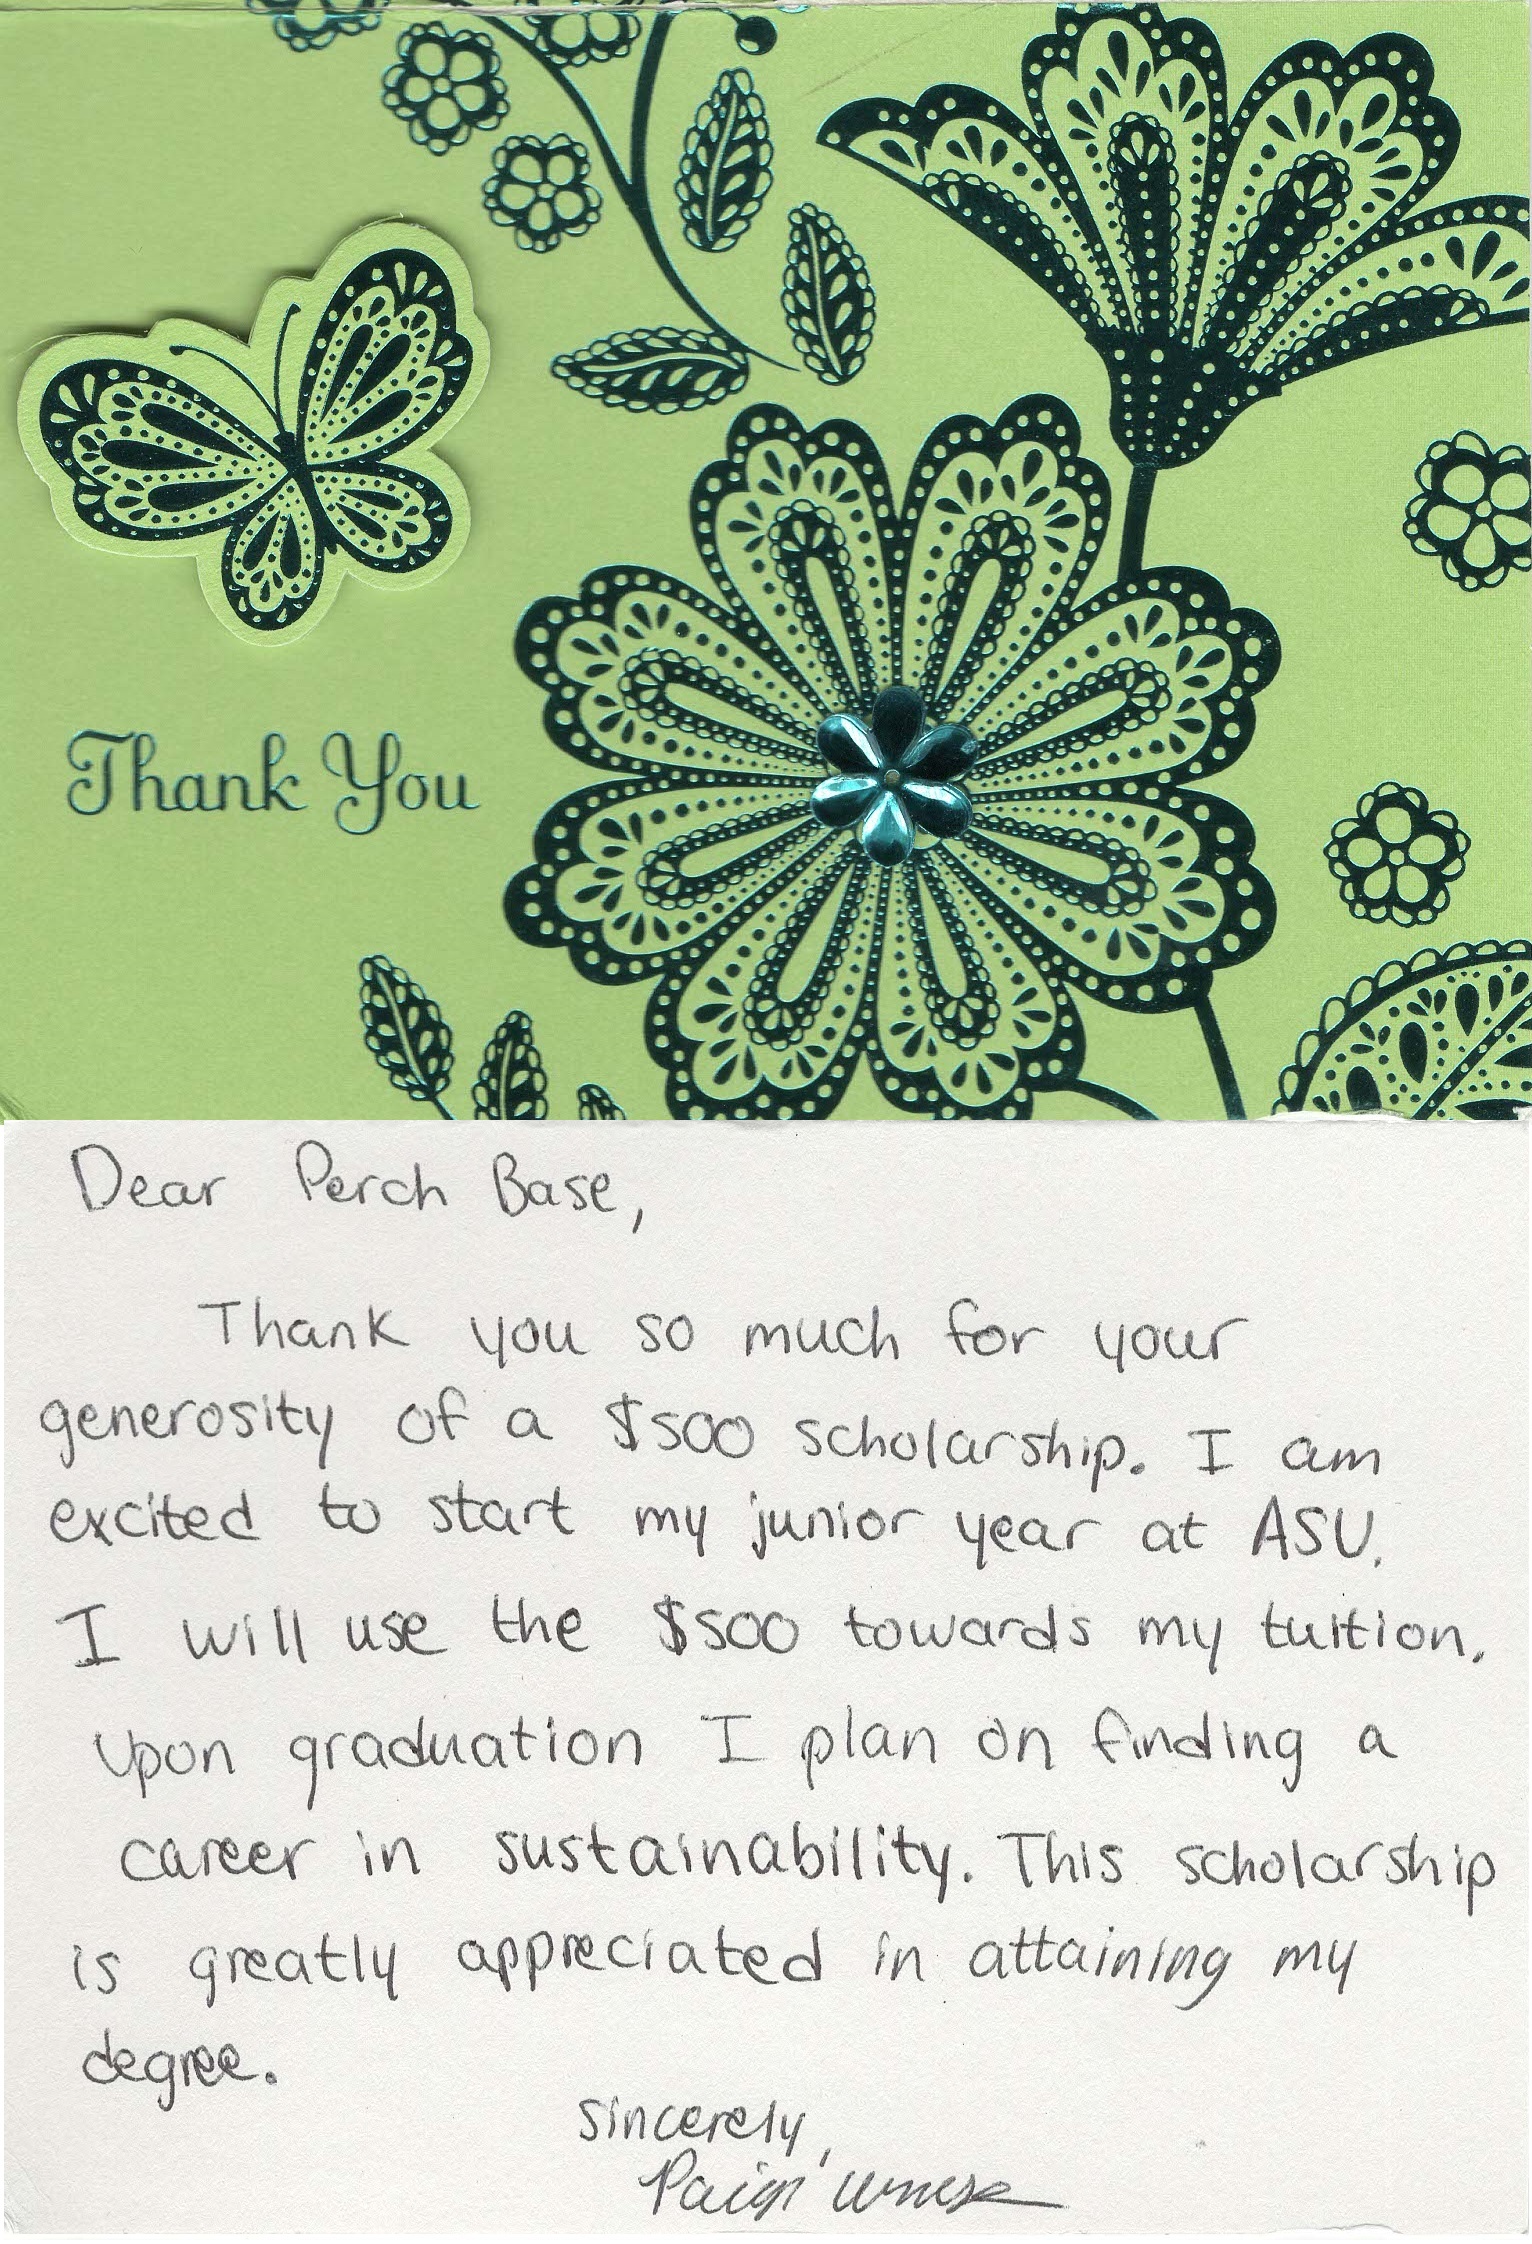 Thank You
Dear Perch Base,
Thank you so much for your
generosity of a $500 scholarship. I am
excited to start my junior year at ASU.
I will use the $500 towards my tuition.
Upon graduation I plan on finding a
career in sustainability. This scholarship
is greatly appreciated in attaining my
degree.
Sincerely,